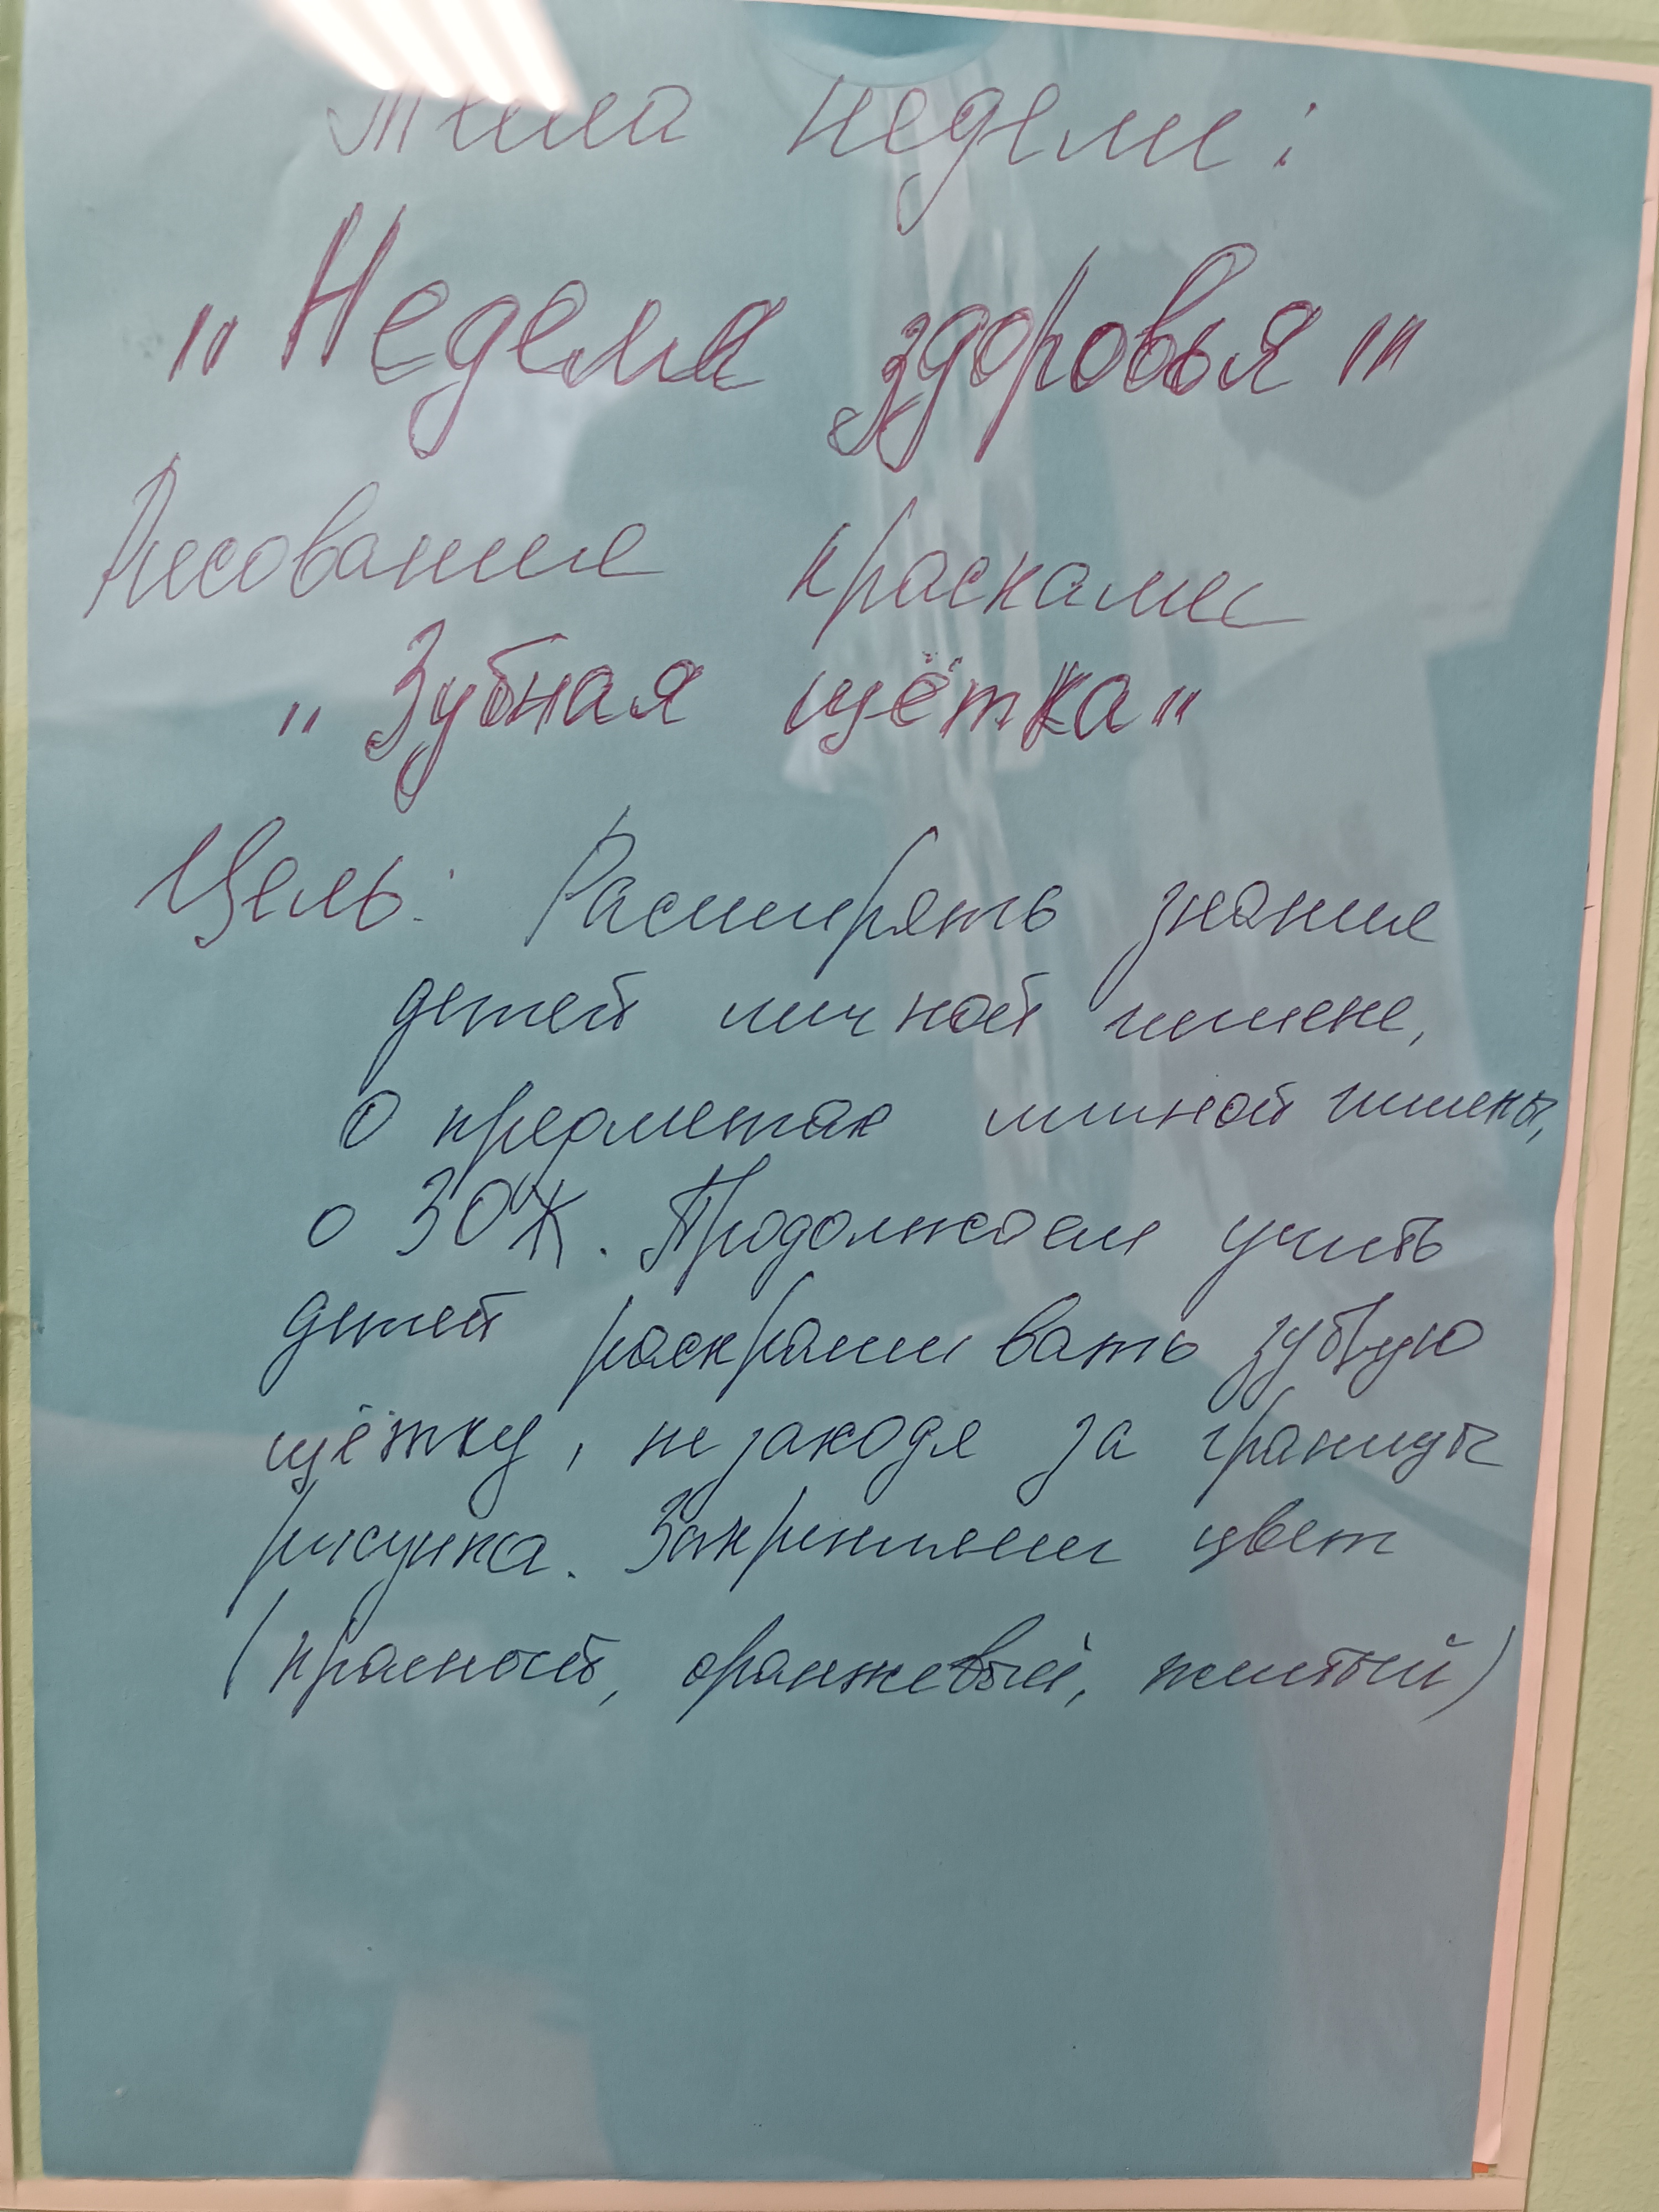 Тема недели:
"Неделя здоровья"
Рисование красками
"Зубная щётка"
Цель: Расширять знание
детей личной гигиене,
о предметах личной гигиены,
о ЗОЖ. Продолжаем учить
детей раскрашивать зубную
щётку, не заходя за границы
рисунка. Закрепляем цвет
(красный, оранжевый, желтый)